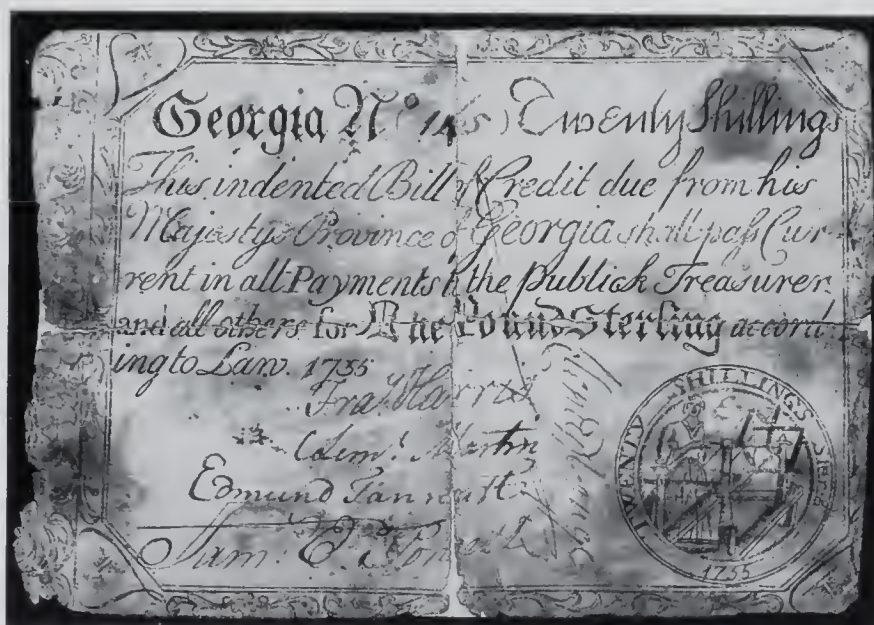 Georgia No 145) Twenty Shillings
This indented Bill of Credit due from his
Majestys Province of Georgia shall pass Cur-
rent in all Payments the publick Treasurer
and all others for One Pound Sterling accord
ing to Law. 1755
Fra. Harris
Clemt. Martin
Edmund Tannatt
TWENTY SHILLINGS
1755